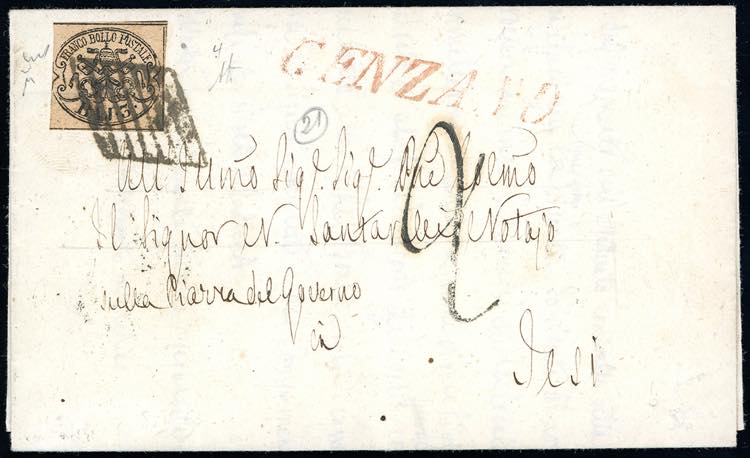 FRANCO BOLLO POSTALE
BAJ. 3
GENZANO
21
2
All'Illmo Sigr. Sigr. Pne Colmo
Il Signor N. Santarelli Notajo
sulla Piazza del Governo
in
Jesi